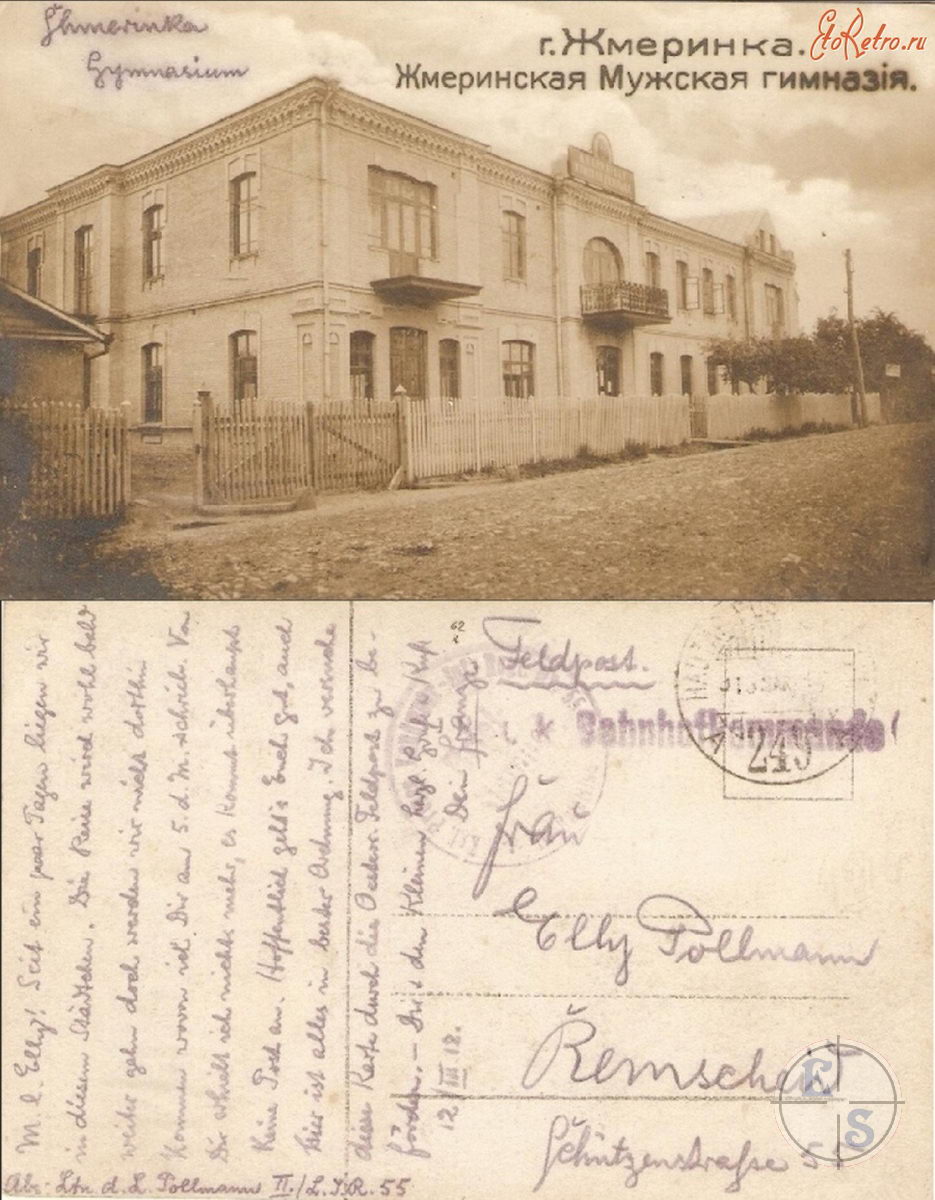 Shmerinka
Gymnasium
г. Жмеринка.
EtoRetro.ru
Жмеринская Мужская гимназія.
M. l. Elly! Seit ein paar Tagen liegen wir
in diesem Städtchen. Die Reise wird wohl bald
weiter gehn doch werden wir nicht dorthin
kommen wovon ich Dir am 5. d. M. schrieb. Von
Dir erhielt ich nichts mehr, es kommt überhaupt
keine Post an. Hoffentlich geht's Euch gut, auch
hier ist alles in bester Ordnung. Ich versuche
diese Karte durch die Oesterr. Feldpost zu be-
fördern. — Dir & den Kleinen herzl. Gruß & Kuß
Dein Franz
12/III 18.
Abs. Ltn. d. L. Pollmann II./L.I.R. 55
62
Feldpost.
k. Bahnhofkommando
249
Frau
Elly Pollmann
Remscheid
Schützenstraße 57
L
E
S